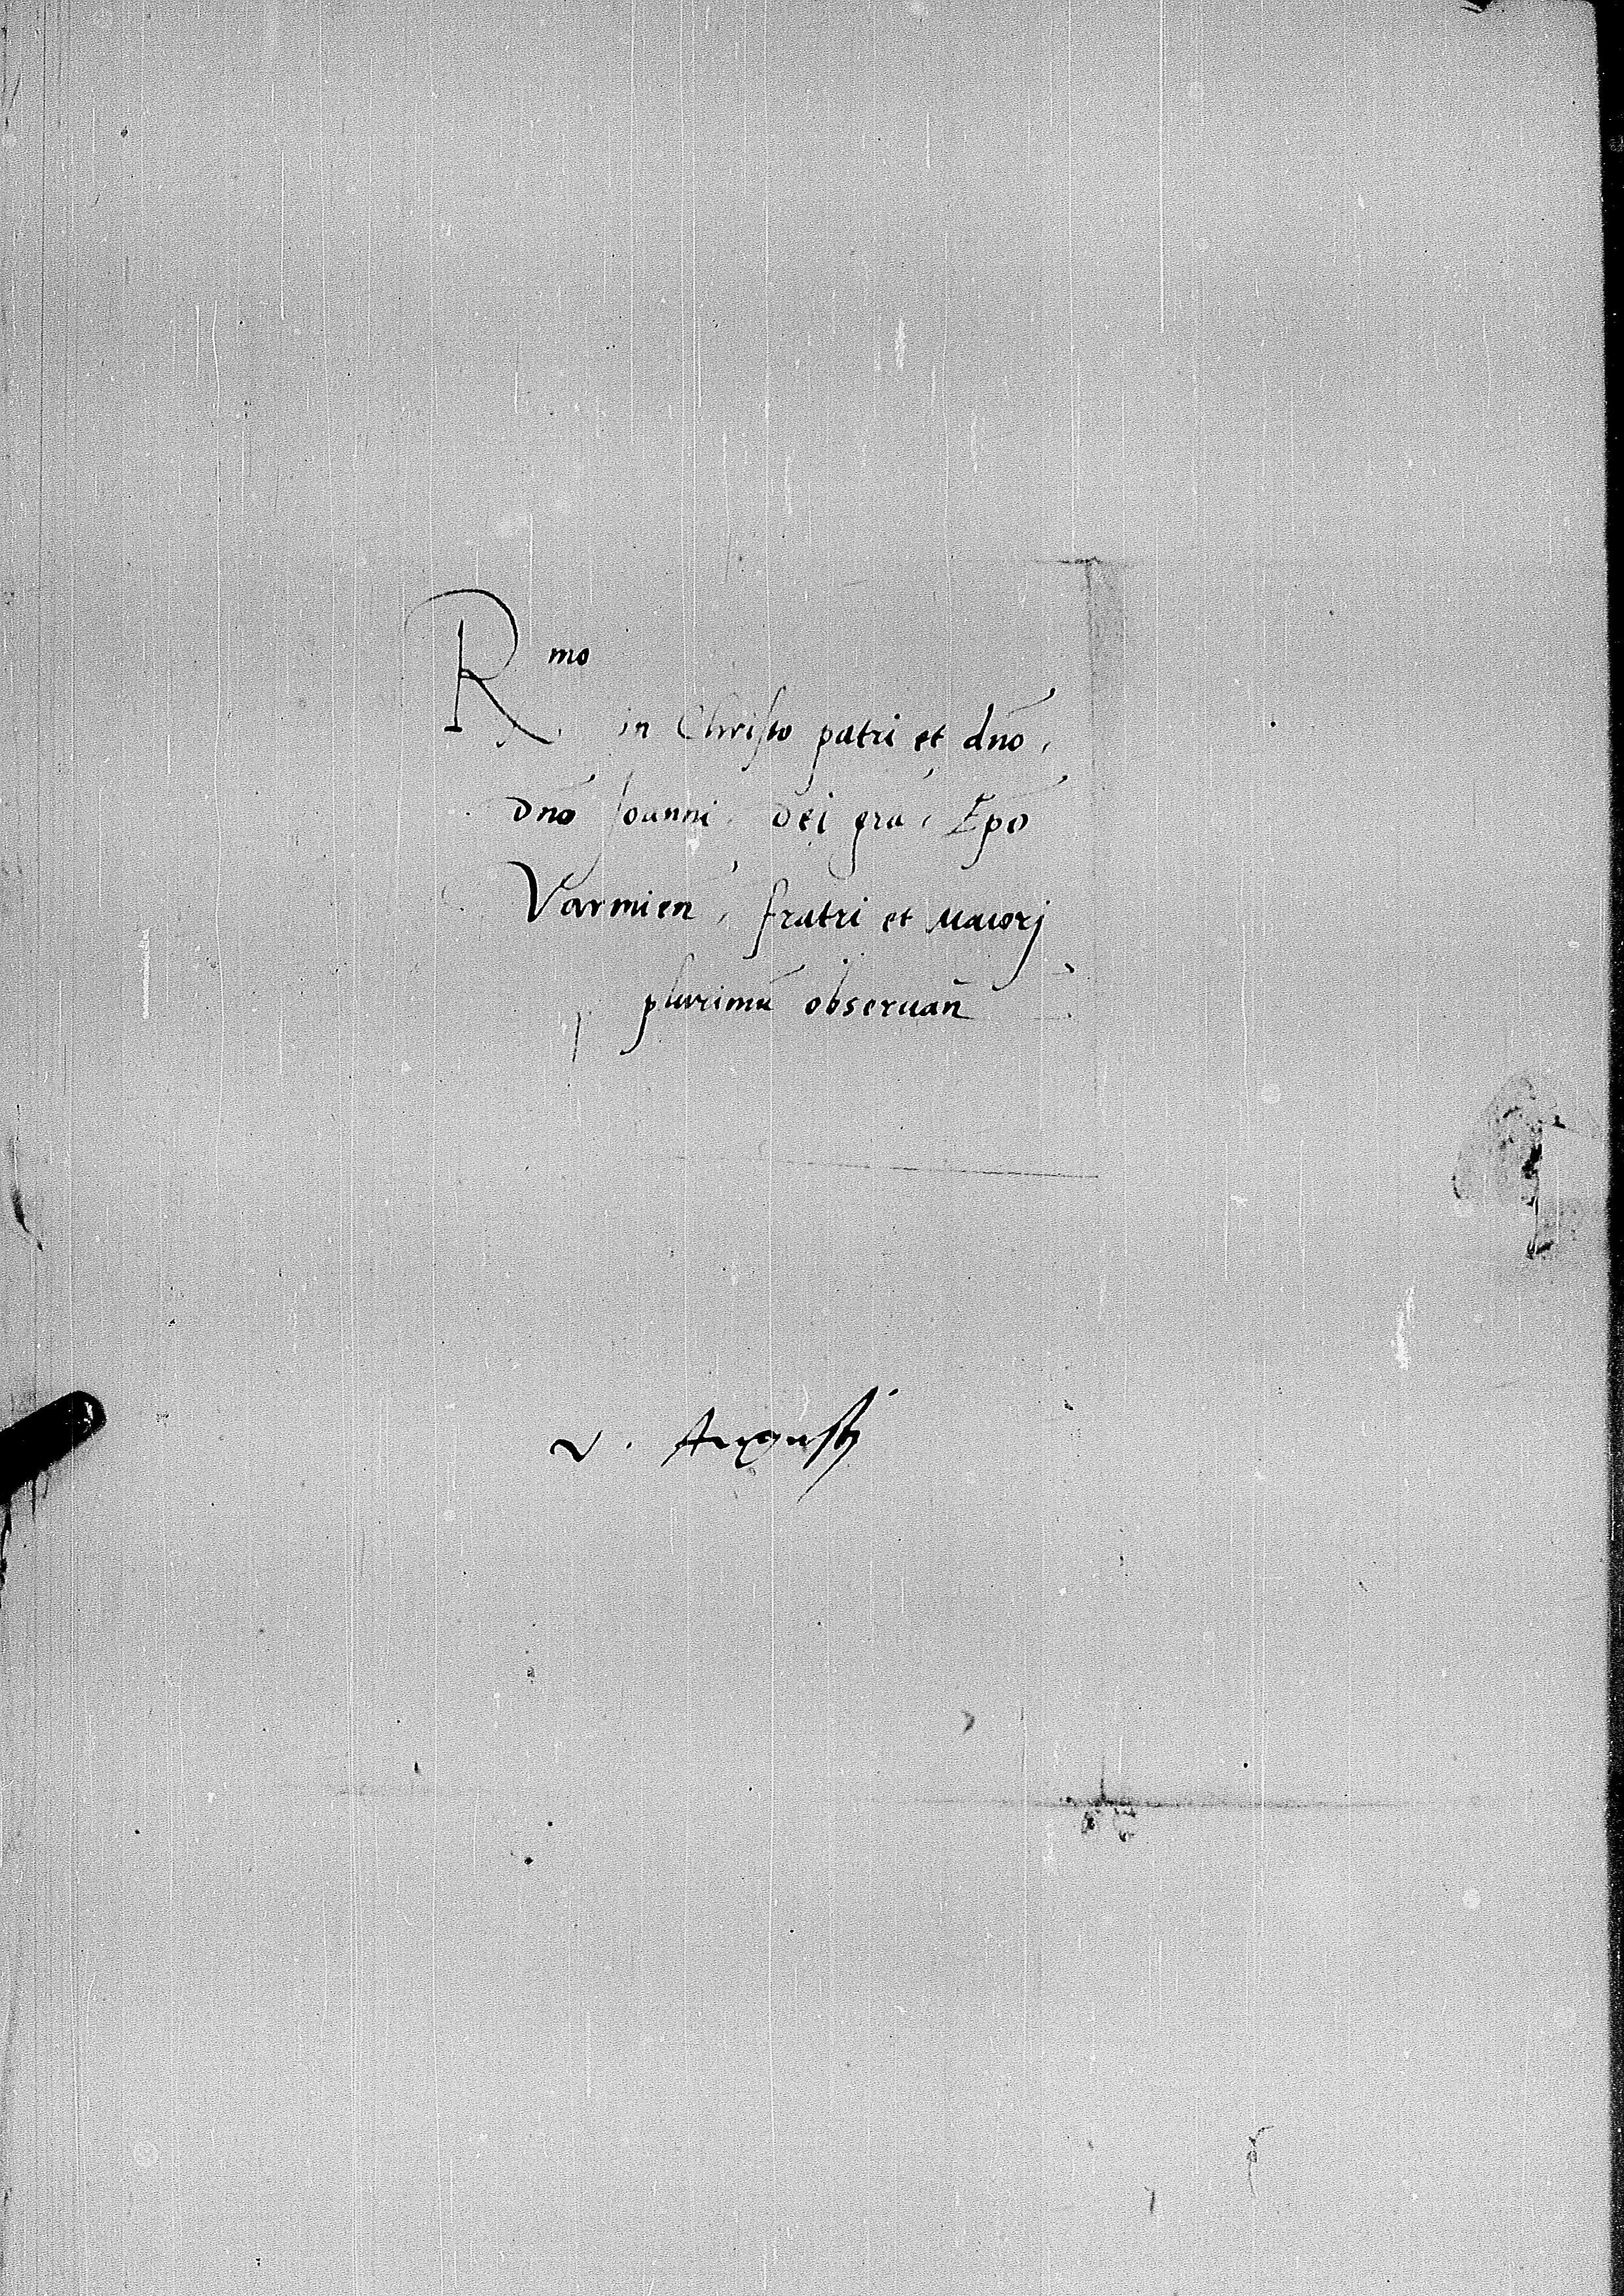 R mo
in Christo patri et dno,
dno Joanni dei gra, Epo
Varmien, fratri et Maiorj
plurimu observan
v. Augusti